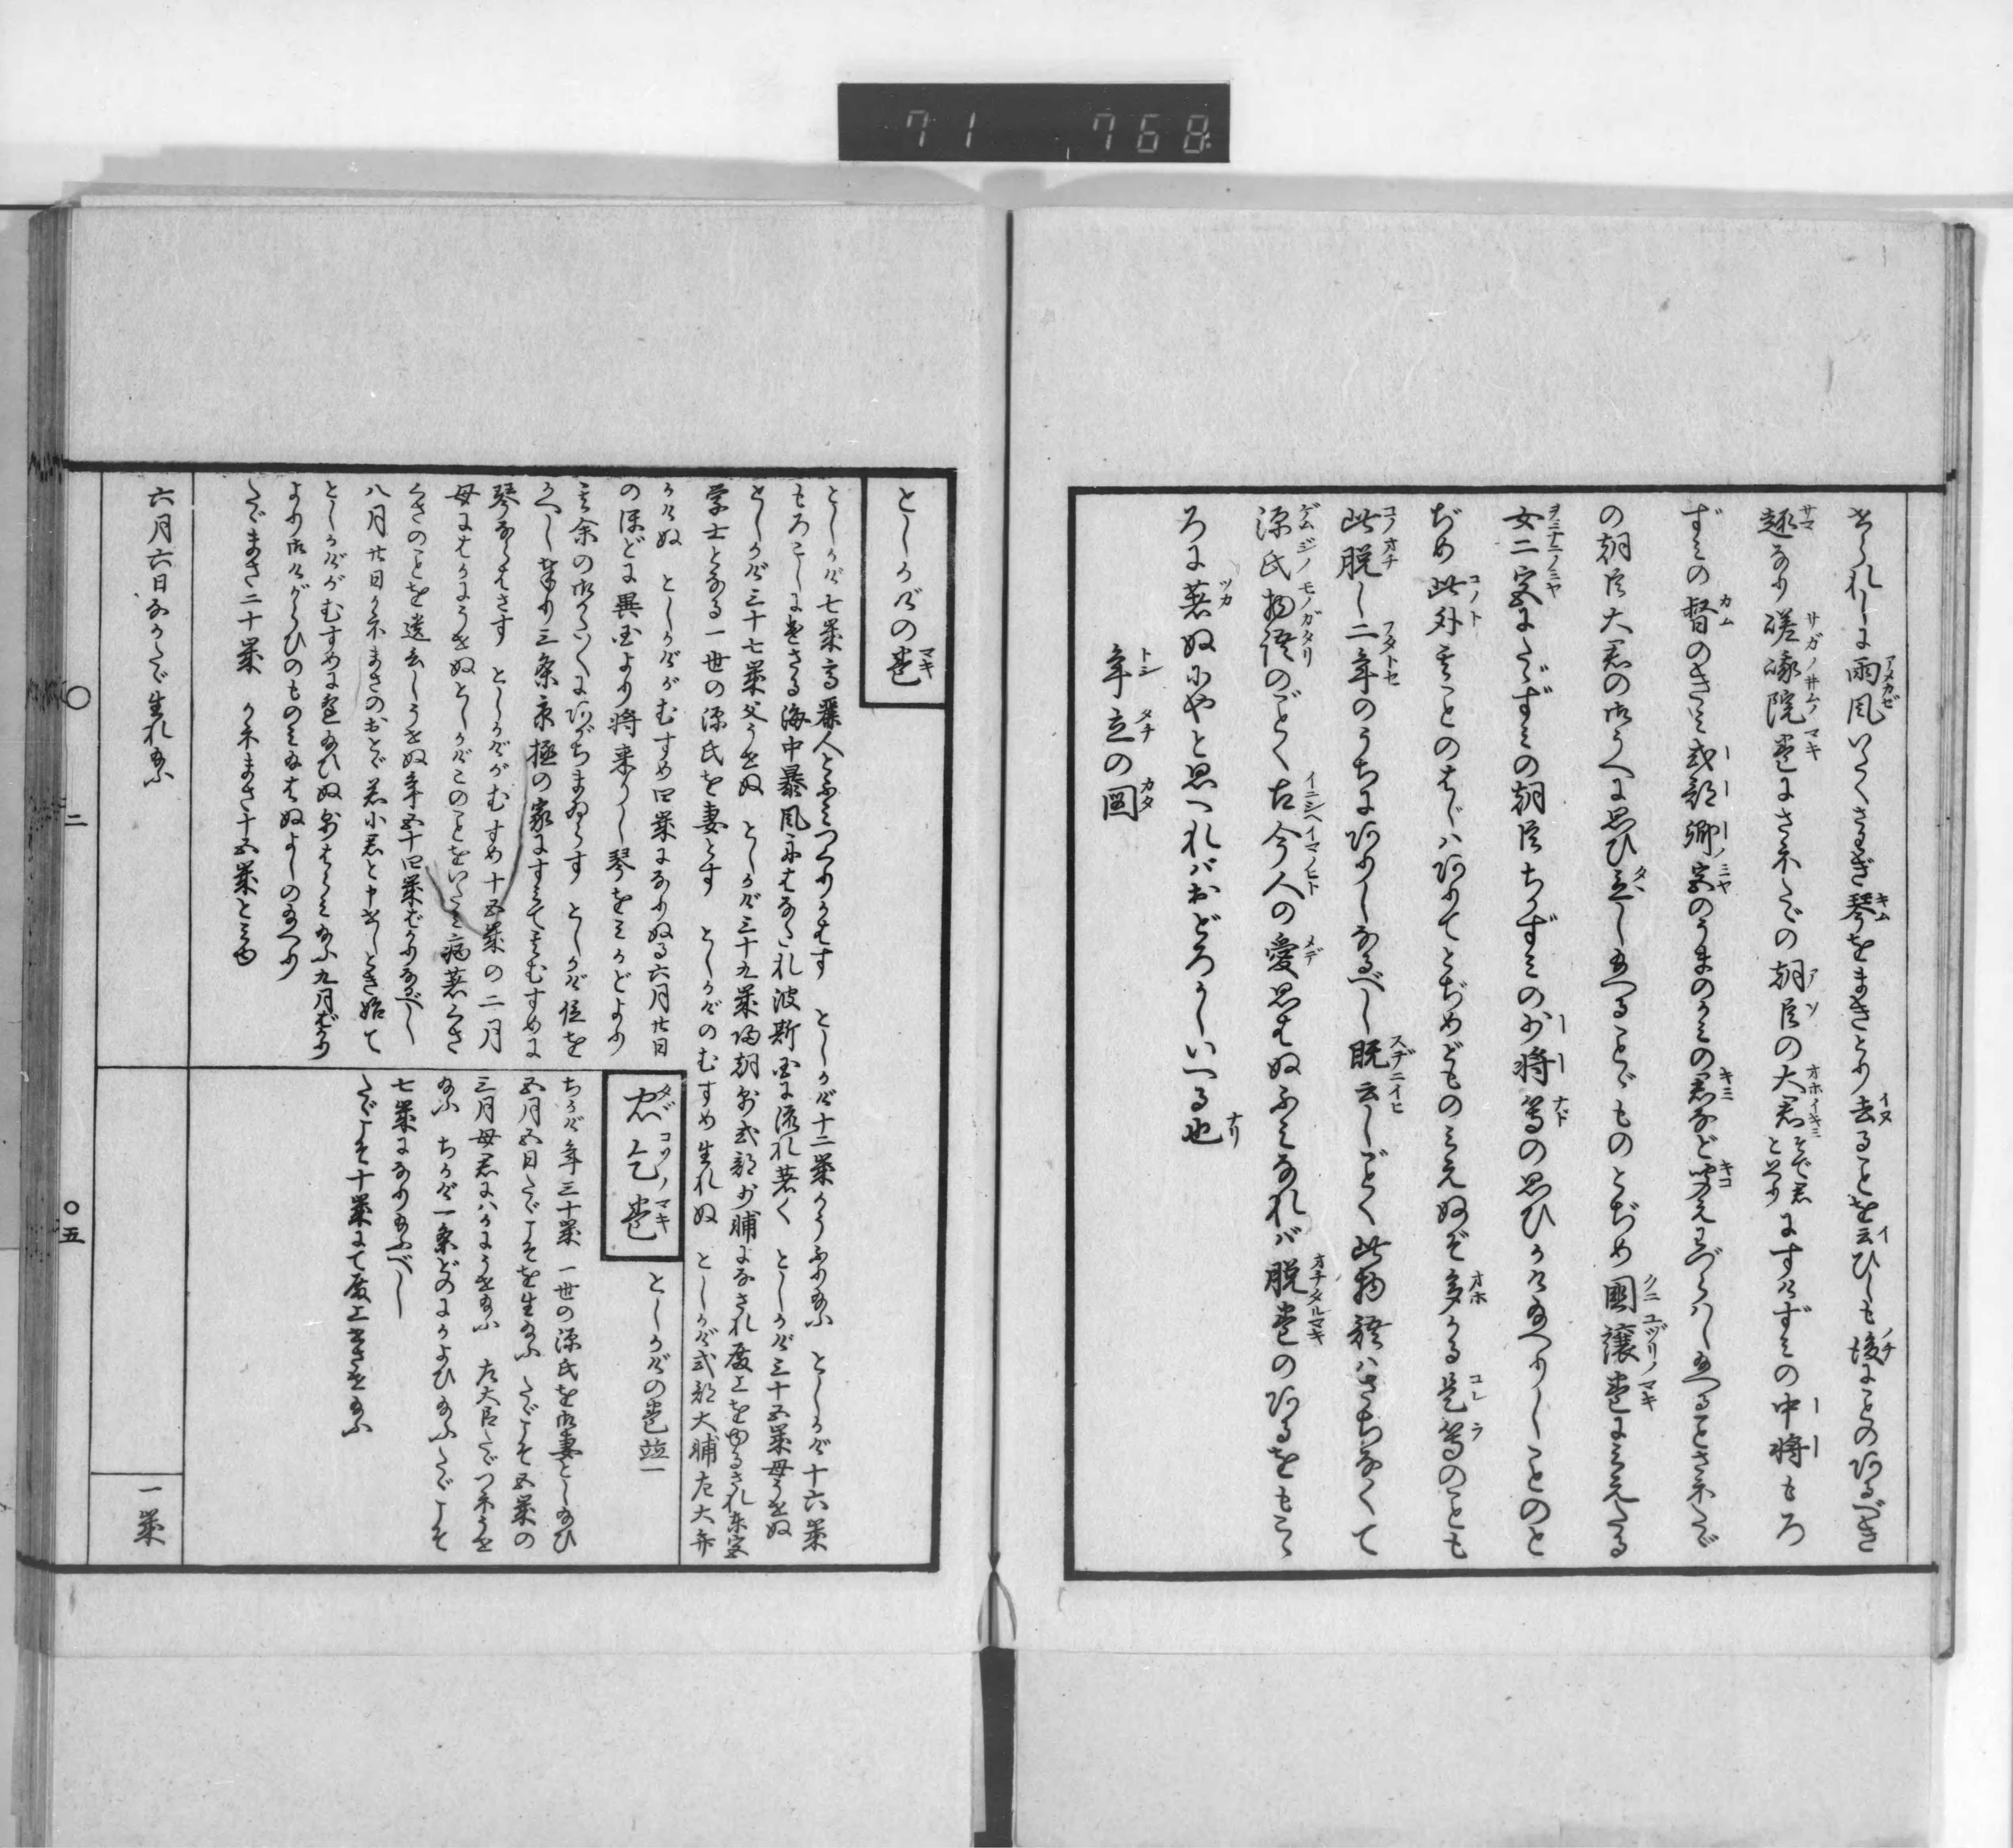 71 768
られしに雨風いたくさわぎ琴をまきとり去ることを云ひしも後にことのあるべき
趣なり嵯峨院巻にさねたゞの朝臣の大君にすけずみの中将もろ
ずみの督のきみ式部卿宮のうまのかみの君など聞えわづらはし給へることさねたゞ
の朝臣大君の御うへに思ひ立し給へることゞものとぢめ国譲巻にみえたる
女二宮にたゞずみの朝臣ちかずみの少将等の思ひかけ給へりしことのと
ぢめ此外さることのはしハありてとぢめどものみえぬぞ多かる是等のことも
此脱し二年のうちにありしなるべし既云しごとく此物語ハさちなくて
源氏物語のごとく古今人の愛思はぬふみなれば脱巻のあるをもこゝ
ろに著ぬにやと思へればおどろかしいへる也
年立の図
としかげの巻
としかげ七歳高麗人とふみつくりかはす としかげ十二歳かうふり給ふ としかげ十六歳
もろこしにわたさる海中暴風にはなたれ波斯国に流れ著く としかげ三十五歳母うせぬ
としかげ三十七歳父うせぬ としかげ三十九歳帰朝則式部少輔になされ殿上をゆるされ東宮
学士となる一世の源氏を妻とす としかげのむすめ生れぬ としかげ式部大輔左大弁
かけぬ としかげがむすめ四歳になりぬる六月廿日
のほどに異国より将来りし琴をみかどより
其余の御かた〴〵にわかちまゐらす としかげ位を
かへし奉り三条京極の家にすみてそむすめに
琴ならはさす としかげがむすめ十五歳の二月
母にはかにうせぬとしかげこのことをいたみ病著くさ
くさのことを遺言しうせぬ年五十四歳ばかりなるべし
八月廿日かねまさのおとゞ若小君と申せしとき始て
としかげがむすめに逢給ひぬ則はらみ給ふ九月ばかり
より御けがらひのものみ給はぬよしのたまへり
たゞまさ二十歳 かねまさ十五歳とみゆ
六月六日なかたゞ生れ給ふ
忠乞巻
としかげの巻並一
ちかげ年三十歳 一世の源氏を御妻とし給ひ
五月五日たゞこそを生給ふ たゞこそ五歳の
三月母君にハかにうせ給ふ 左大臣たゞつねうせ
給ふ ちかげ一条どのにかよひ給ふたゞこそ
七歳になり給ふべし
たゞこそ十歳にて殿上せさせ給ふ
一歳
二
五